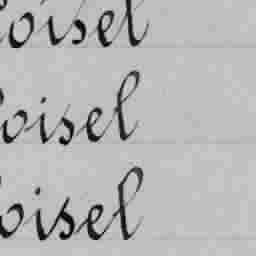 oisel
oisel
oisel